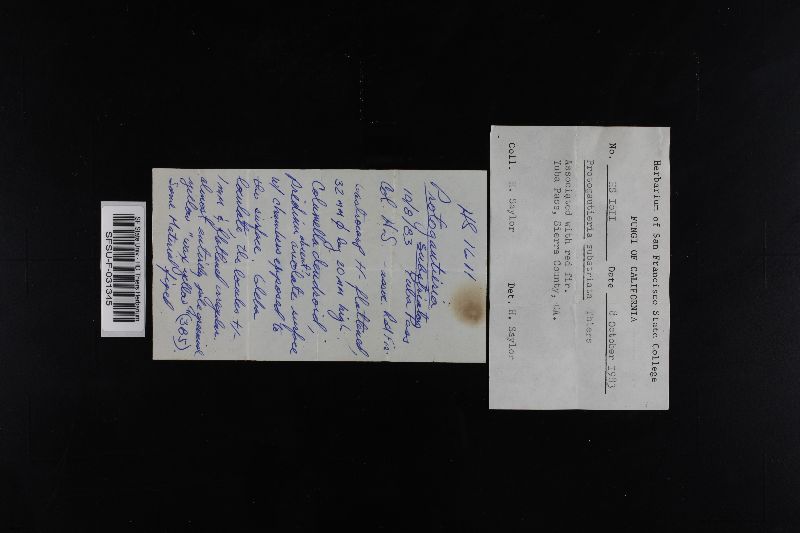 Herbarium of San Francisco State College
FUNGI OF CALIFORNIA
No. HS 1611 Date 8 October 1983
Protogautieria substriata Thiers
Associated with red fir.
Yuba Pass, Sierra County, CA.
Coll. H. Saylor Det. H. Saylor
HS 1611
Protogautieria
substriata
10/8/83 Yuba Pass
Col HS near Red Fir.
Gastrocarp +/- flattened,
32 mm φ by 20 mm high
Columella dendroid;
Peridium surface
w/ chambers exposed to
the surface. Gleba
loculate the locules +/-
1 mm & flattened irregular.
almost entirely
yellow "wax yellow" (305).
Some Natural
SF State Univ - HD Thiers Herbarium
SFSU-F-031345